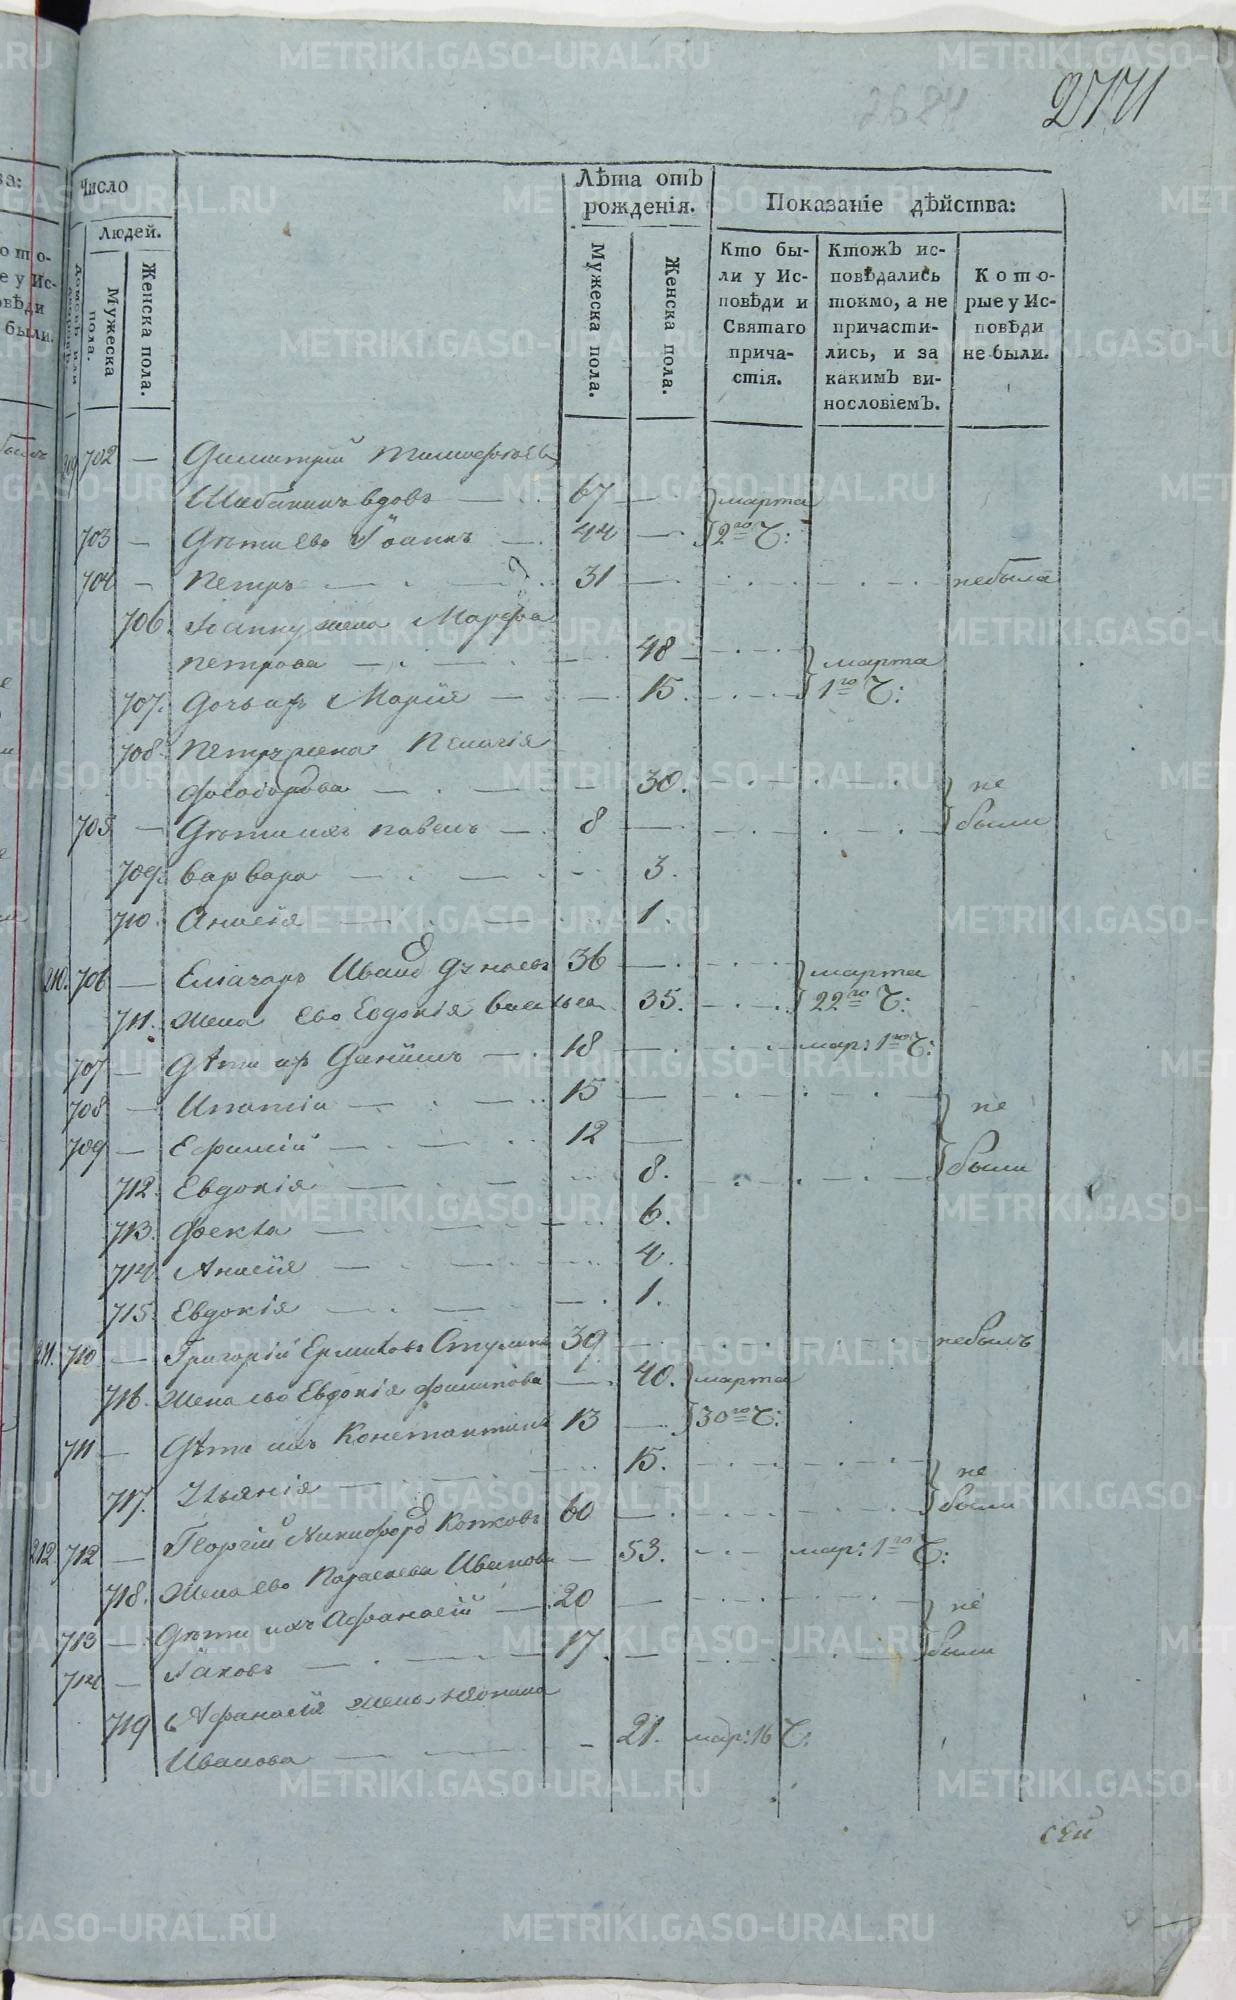 2684
2771
Число
Людей.
Домовъ или
Мужеска пола.
Женска пола.
Лѣта отъ рожденія.
Мужеска пола.
Женска пола.
Показаніе дѣйства:
Кто бы-
ли у Ис-
повѣди и
Святаго
прича-
стія.
Ктожъ ис-
повѣдались
токмо, а не
причасти-
лись, и за
какимъ ви-
нословіемъ.
Кото-
рые у Ис-
повѣди
не были.
209 702 — Димитрий
Шабанинъ вдовъ — 67 — марта
703 — Дѣти ево Іоаннъ — 44 — 2го Ч:
704 — Петръ — 31 — небыла
706. Іоанну жена Марфа
петрова — 48 — марта
707. Дочь их Марія — 15. 1го Ч:
708. Петръ жена Пелагія
30. не
705 — Дѣти ихъ павелъ — 8 — были
709. варвара — 3.
710. Анасія — 1.
210. 706 — Елиазаръ Иванов 36 — марта
711. Жена Ево Евдокія 35. 22го Ч:
707 — Дѣти их Даніилъ — 18 — мар: 1го Ч:
708 — Ипатій — 15 — не
709 — Ефимій — 12 —
712. Евдокія — 8. были
713. Фекла — 6.
714. Анасія — 4.
715. Евдокія — 1.
211. 710 — Григорій Ермиловъ 39 — небылъ
716. Жена ево Евдокія филипова — 40. марта
711 — Дѣти ихъ Константинъ 13 — 30го Ч:
717. Ульянія — 15. не были
212. 712 — Георгій Никифоров Копковъ 60 —
718. Жена ево Параскева Иванова — 53. мар: 1го Ч:
713 — Дѣти ихъ Афанасій — 20 — не
714 — Іаковъ — 17. — были
719 Афанасія жена
Иванова — 21. мар: 16 Ч: